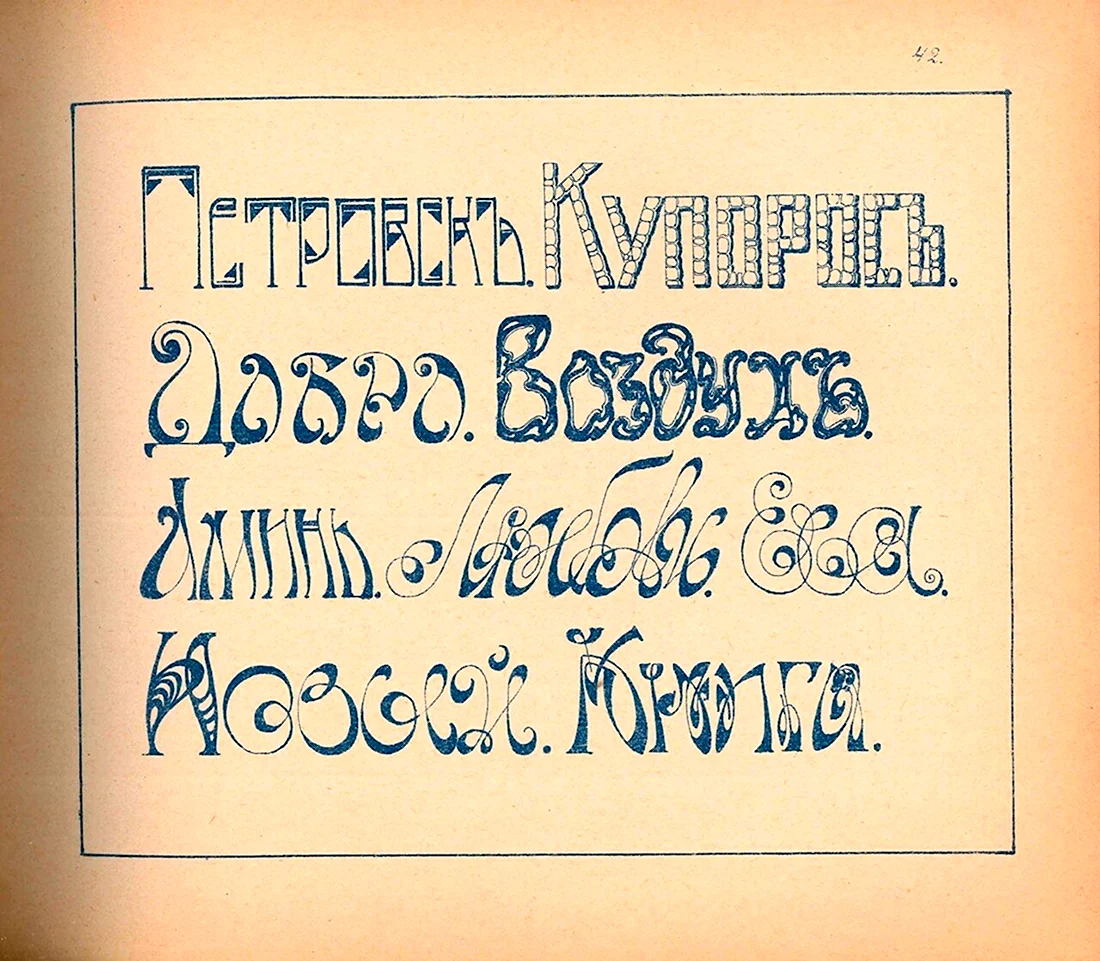 42.
Петровскъ. Купоросъ.
Добро. Воздухъ.
Аминь. Любовь. Ева.
Книга.